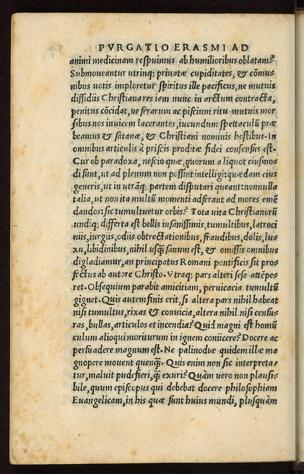 PVRGATIO ERASMI AD
animi medicinam respuimus ab humilioribus oblatam?
Submoueantur utrinq; priuatæ cupiditates, & cōmu
nibus uotis imploretur spiritus ille pacificus, ne mutuis
dissidijs Christiana res iam nunc in arctum contracta,
penitus cōcidat, ne ferarum ac piscium ritu mutuis mor
sibus nos inuicem lacerantes, iucundum spectaculū præ
beamus & satanæ, & Christiani nominis hostibus. In
omnibus articulis à priscis proditæ fidei consensus est.
Cur ob paradoxa, nescio quæ, quorum aliquot eiusmo
di sunt, ut ad plenum non possint intelligi: quædam eius
generis, ut in utrāq; partem disputari queant: nonnulla
talia, ut non ita multū momenti adferant ad mores emē
dandos: sic tumultuetur orbis? Tota uita Christianorū
undiq; differta est bellis insanissimis, tumultibus, latroci
nijs, iurgijs, odijs obtrectationibus, fraudibus, dolis, lu
xu, libidinibus, nihil usq̄; sanum est, & omissis omnibus
digladiamur, an principatus Romani pontificis sit pro
fectus ab autore Christo. Vtraq; pars alteri sese attēpe
ret. Obsequium parabit amicitiam, peruicacia tumultū
gignet. Quis autem finis erit, si altera pars nihil habeat
nisi tumultus, rixas & conuicia, altera nihil nisi censu
ras, bullas, articulos et incendia? Quid magni est homū
culum alioqui moriturum in ignem conijcere? Docere ac
persuadere magnum est. Ne palinodiæ quidem illæ ma
gnopere mouent quenq̄;. Quis enim non sic interpreta
tur, maluit pudefieri, q̄; exuri? Quàm uero non plausi
bile, quum episcopus qui debebat docere philosophiam
Euangelicam, in his quæ sunt huius mundi, plusquàm